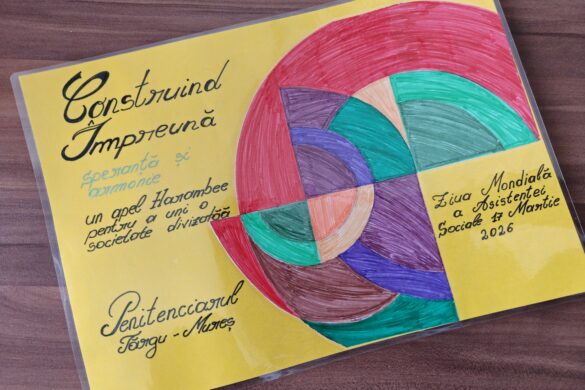 Construind
Împreună
speranță și
armonie
un apel Harambee
pentru a uni o
societate divizată
Penitenciarul
Târgu - Mureș
Ziua Mondială
a Asistenței
Sociale 17 Martie
2026